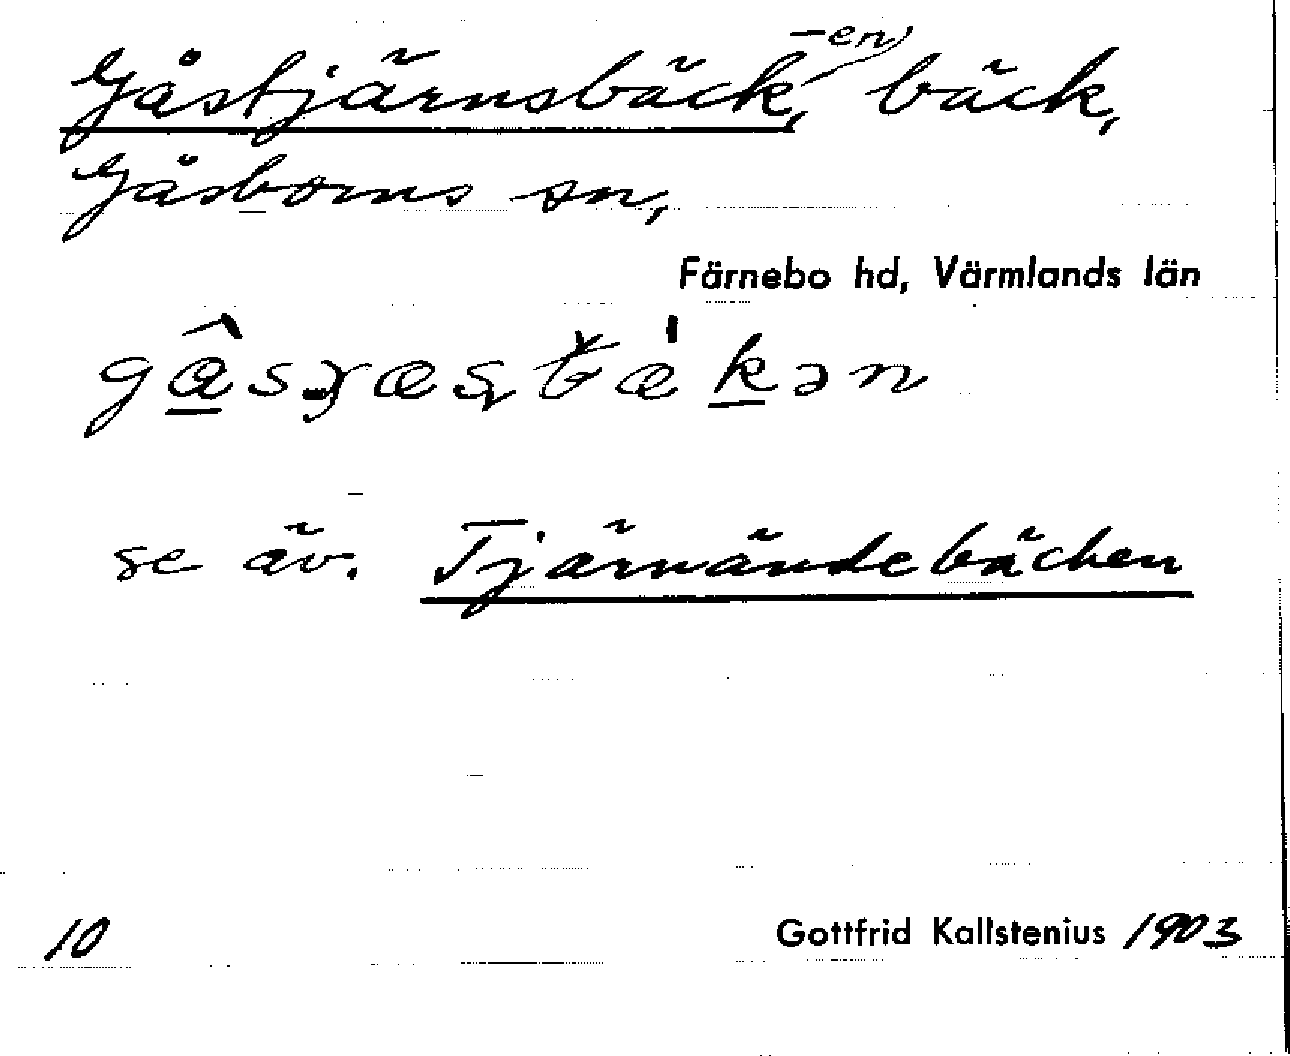 Gåstjärnsbäck, -en bäck,
Gåsborns sn,
Färnebo hd, Värmlands län
se äv. Tjärnändebäcken
10 Gottfrid Kallstenius 1903